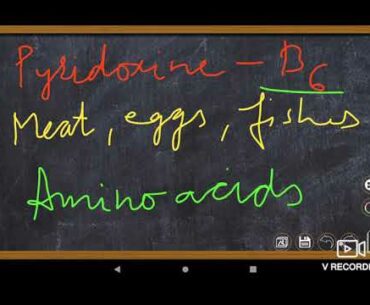 Pyridoxine - B6
Meat, eggs, fishes
Amino acids
V RECORDE